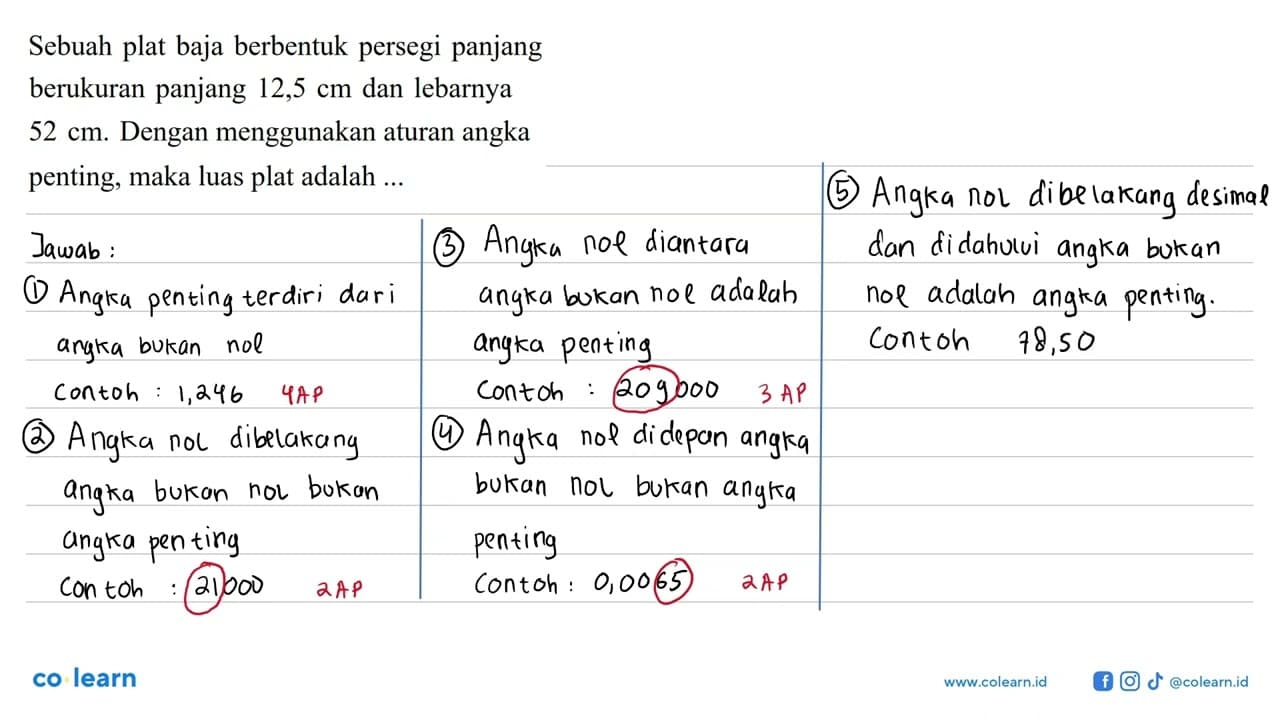 Sebuah plat baja berbentuk persegi panjang
berukuran panjang 12,5 cm dan lebarnya
52 cm. Dengan menggunakan aturan angka
penting, maka luas plat adalah ...
Jawab :
① Angka penting terdiri dari
angka bukan nol
Contoh : 1,246 4AP
② Angka nol dibelakang
angka bukan nol bukan
angka penting
Contoh : 21000 2AP
③ Angka nol diantara
angka bukan nol adalah
angka penting
Contoh : 209000 3 AP
④ Angka nol didepan angka
bukan nol bukan angka
penting
Contoh : 0,0065 2AP
⑤ Angka nol dibelakang desimal
dan didahului angka bukan
nol adalah angka penting.
Contoh 78,50
co learn
www.colearn.id
@colearn.id